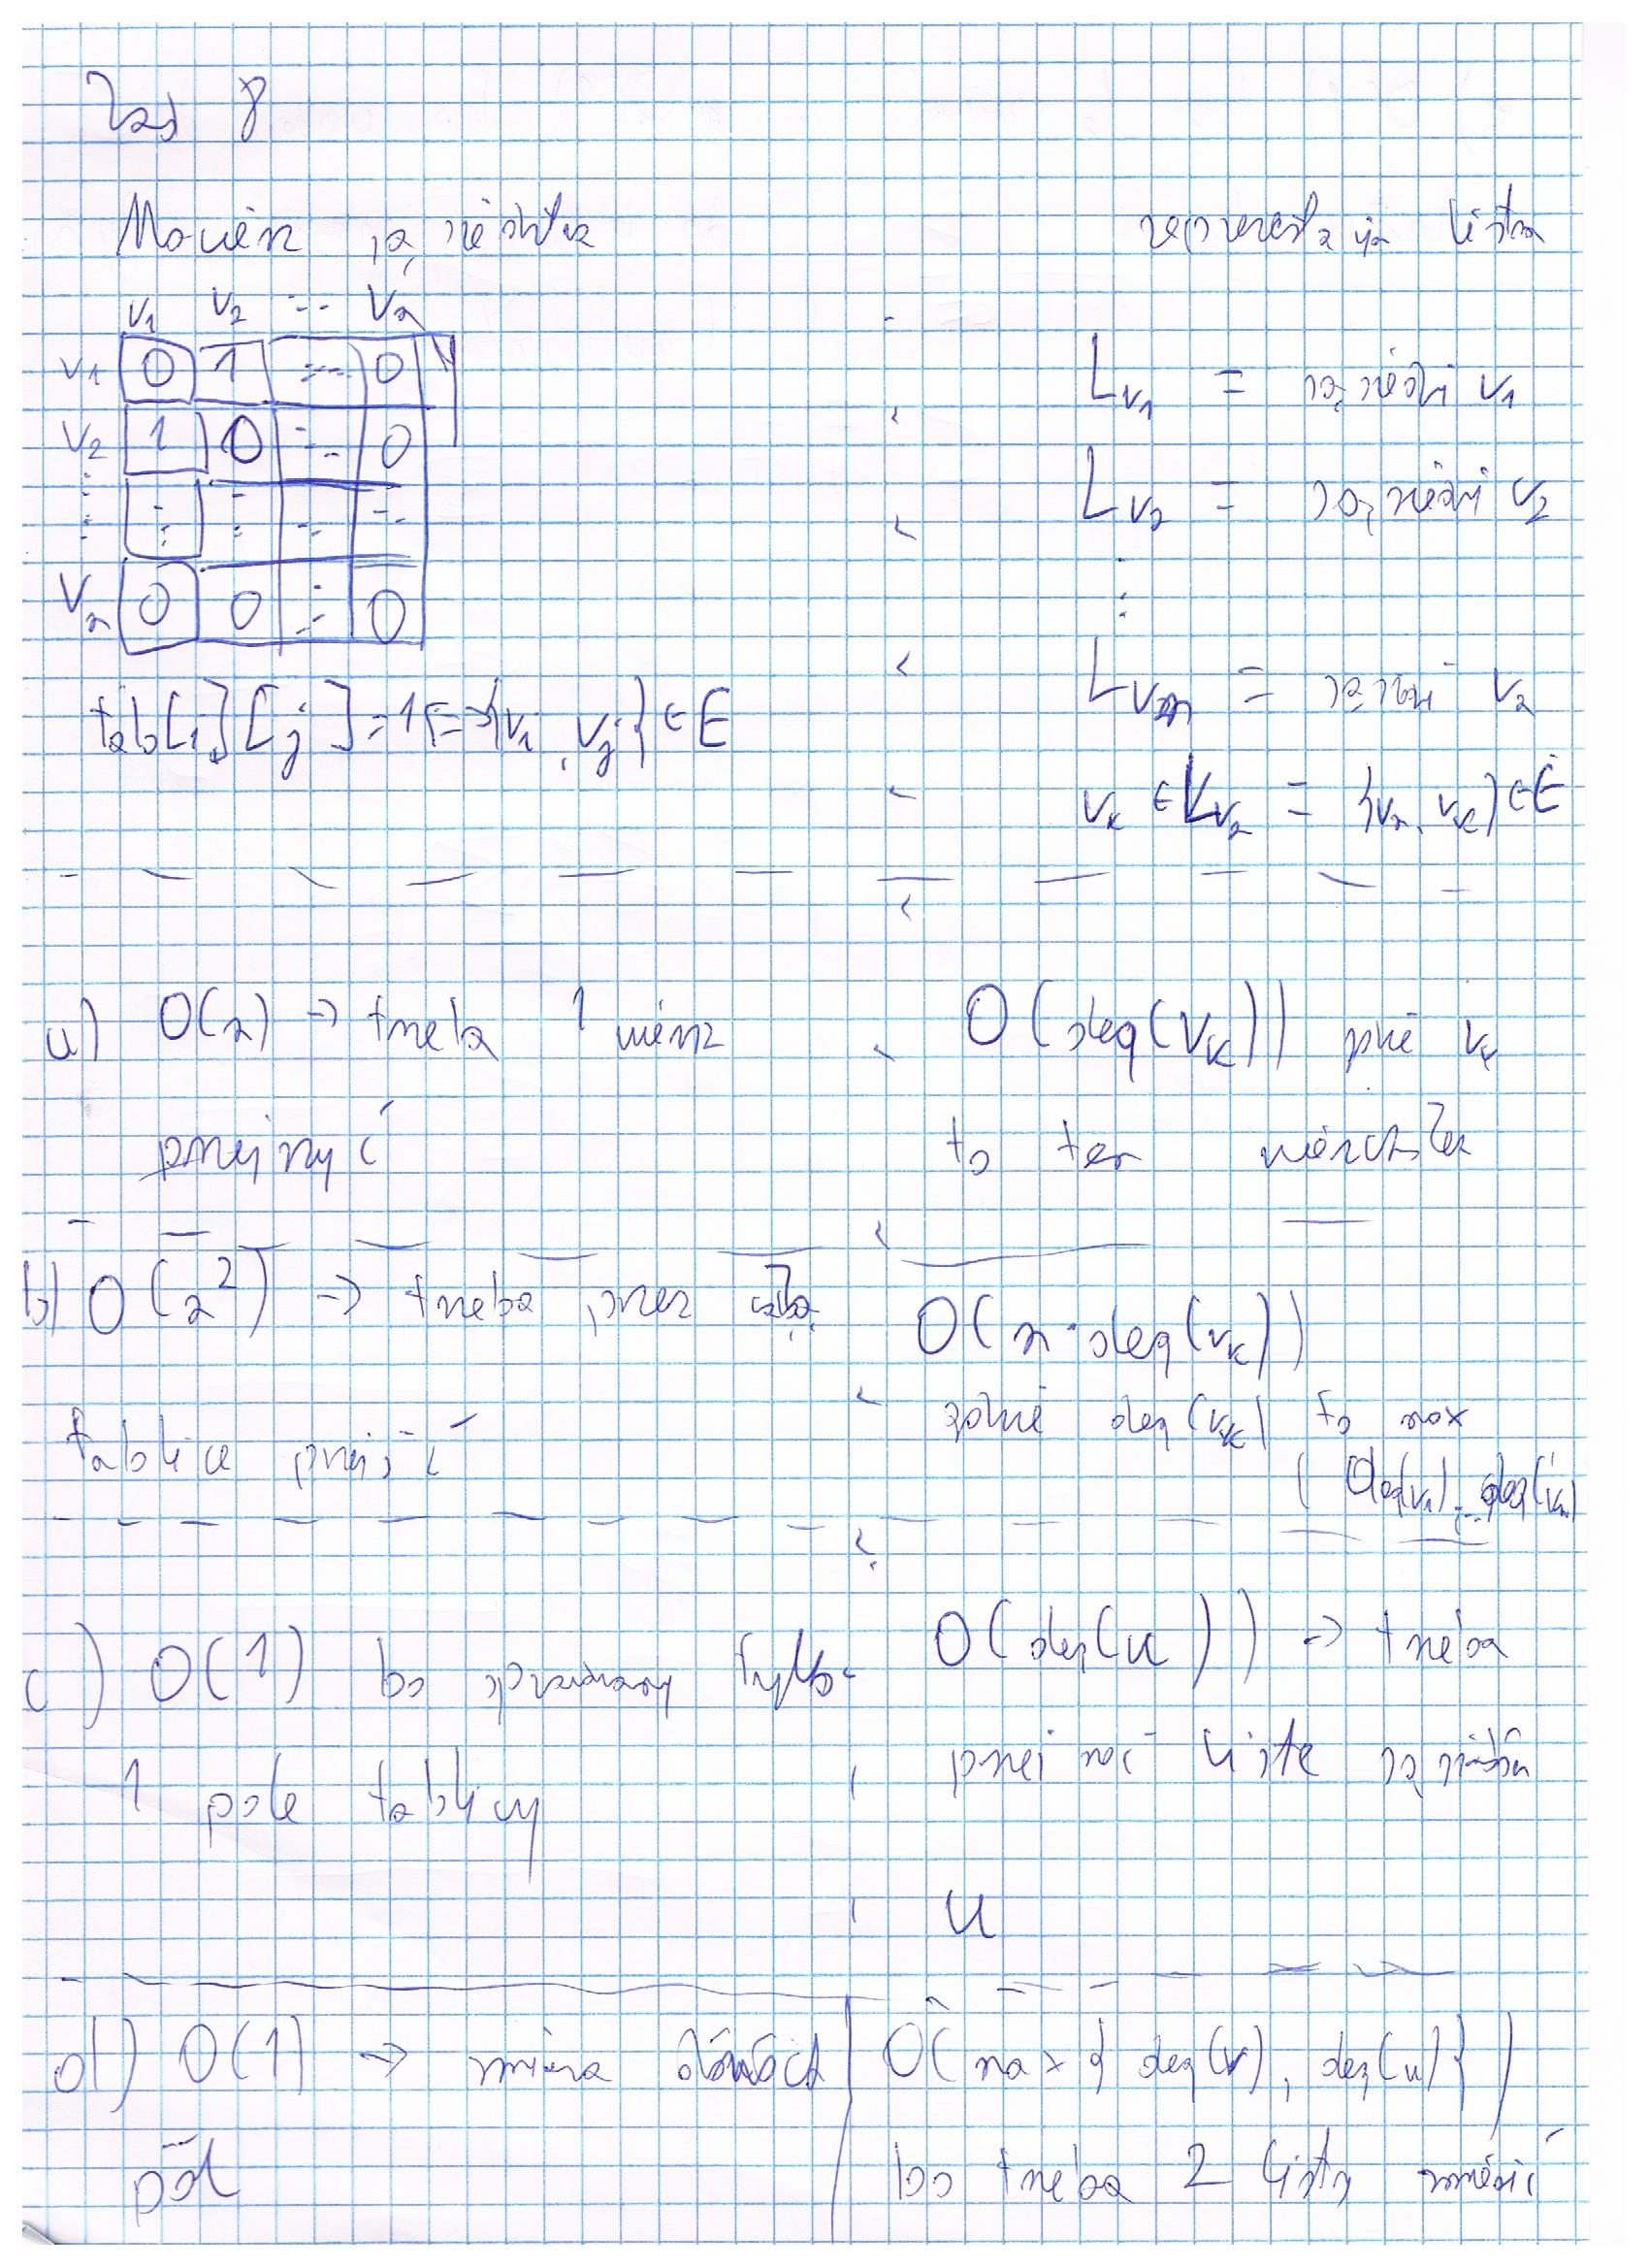 Zad 8
Macierz sąsiedztwa
v1 v2 ... vn
v1 0 1 ... 0
v2 1 0 ... 0
vn 0 0 ... 0
tab[i][j]=1 <=> {vi, vj} ∈ E
reprezentacja listowa
Lv1 = sąsiedzi v1
Lv2 = sąsiedzi v2
⋮
Lvn = sąsiedzi vn
vk ∈ Lvn = {vn, vk} ∈ E
a) O(n) → trzeba 1 wiersz
przejrzyć
O(deg(vk)) gdzie vk
to ten wierzchołek
b) O(n²) → trzeba przez całą
tablice przejść
O(n·deg(vk))
gdzie deg(vk) to max
(deg(v1), ... deg(vn)
c) O(1) bo sprawdzamy tylko
1 pole tablicy
O(deg(u)) → trzeba
przejrzeć liste sąsiadów
u
d) O(1) → zmiana dwóch
pól
O(max{deg(v), deg(u)})
bo trzeba 2 listy zmienić